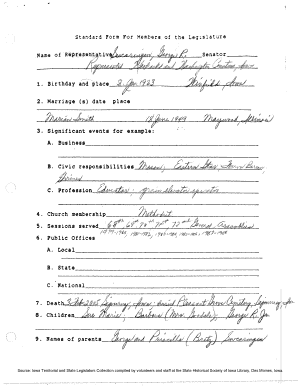 Standard Form For Members of the Legislature
Name of Representative Swearingen, George R. Senator
Represented Keokuk and Washington Counties, Iowa
1. Birthday and place 2 Jan 1923 Winfield, Iowa
2. Marriage (s) date place
Marian Smith 18 June 1949 Maywood, Illinois
3. Significant events for example:
A. Business
B. Civic responsibilities Mason; Eastern Star; Farm Bureau
Shriners
C. Profession Educator; grain elevator operator
4. Church membership Methodist
5. Sessions served 68th, 69th, 70th, 71st, 72nd General Assemblies
6. Public Offices
A. Local
B. State
C. National
7. Death Sigourney, Iowa buried Pleasant Grove Cemetery, Sigourney, Iowa
8. Children Sara Marie; Barbara George R. Jr.
9. Names of parents George and Priscilla (Beatty) Swearingen
Source: Iowa Territorial and State Legislators Collection compiled by volunteers and staff at the State Historical Society of Iowa Library, Des Moines, Iowa.